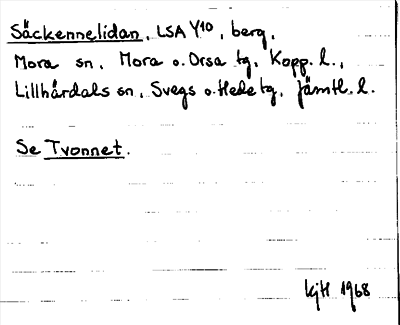 Säckennelidan, LSA Y10, berg,
Mora sn, Mora o. Orsa tg, Kopp. l.,
Lillhärdals sn, Svegs o. Hede tg, Jämtl. l.
Se Tvonnet.
KjH 1968